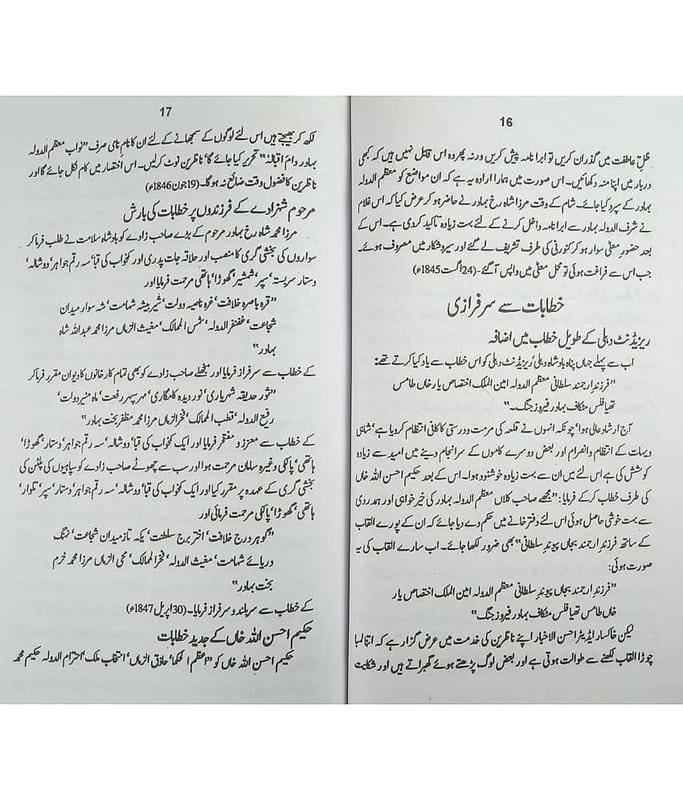 16
ظلِ عاطفت میں گذران کریں تو ابرا نامہ پیش کریں ورنہ پھر وہ اس قابل نہیں ہیں کہ کبھی
دربار میں اپنا منہ دکھائیں۔ اس صورت میں ہمارا ارادہ یہ ہے کہ ان مواضع کو معظم الدولہ
بہادر کے سپرد کیا جائے۔ شام کے وقت مرزا شاہ رخ بہادر نے حاضر ہو کر عرض کیا کہ اس غلام
نے شرف الدولہ بہادر سے ابرا نامہ داخل کرنے کے لئے بہت زیادہ تاکید کر دی ہے۔ اس کے
بعد حضور معلیٰ سوار ہو کر کنورنی کی طرف تشریف لے گئے اور سیر و شکار میں مصروف ہوئے۔
جب اس سے فراغت ہوئی تو محل معلیٰ میں واپس آ گئے۔ (24 اگست 1845ء)
خطابات سے سرفرازی
ریزیڈنٹ دہلی کے طویل خطاب میں اضافہ
اب سے پہلے جہاں پناہ بادشاہ دہلی' ریزیڈنٹ دہلی کو اس خطاب سے یاد کیا کرتے تھے:
"فرزند ارجمند سلطانی معظم الدولہ امین الملک اختصاص یار خاں طامس
تھیا فلس مٹکاف بہادر فیروز جنگ۔"
آج ارشاد عالی ہوا' چونکہ انہوں نے قلعہ کی مرمت و درستی کا کافی انتظام کر دیا ہے' شاہی
دیہات کے انتظام و انصرام اور بعض دوسرے کاموں کے سرانجام دینے میں امید سے زیادہ
کوشش کی ہے اس لئے میں ان سے بہت زیادہ خوشنود ہوا۔ اس کے بعد حکیم احسن اللہ خاں
کی طرف خطاب کر کے فرمایا: "مجھے صاحب کلاں معظم الدولہ بہادر کی خیر خواہی اور ہمدردی
سے بہت خوشی حاصل ہوئی اس لئے دفتر خانے میں حکم دے دیا جائے کہ ان کے پورے القاب
کے ساتھ فرزند ارجمند بجاں پیوند سلطانی" بھی ضرور لکھا جائے۔ اب سارے القاب کی یہ
صورت ہوئی:
"فرزند ارجمند بجاں پیوند سلطانی معظم الدولہ امین الملک اختصاص یار
خاں طامس تھیا فلس مٹکاف بہادر فیروز جنگ۔"
لیکن خاکسار ایڈیٹر احسن الاخبار اپنے ناظرین کی خدمت میں عرض گزار ہے کہ اتنا لمبا
چوڑا القاب لکھنے سے طوالت ہوتی ہے اور بعض لوگ پڑھتے ہوئے گھبراتے ہیں اور شکایت
17
لکھ کر بھیجتے ہیں اس لئے لوگوں کے سمجھانے کے لئے ان کا نام نامی صرف "نواب معظم الدولہ
بہادر دام اقبالہٗ" تحریر کیا جائے گا' ناظرین نوٹ کر لیں۔ اس اختصار میں کام نکل جائے گا اور
ناظرین کا فضول وقت ضائع نہ ہو گا۔ (19 جون 1846ء)
مرحوم شہزادے کے فرزندوں پر خطابات کی بارش
مرزا محمد شاہ رخ بہادر مرحوم کے بڑے صاحب زادے کو بادشاہ سلامت نے طلب فرما کر
سواروں کی بخشی گری کا منصب اور علاقہ جات پدری اور کمخواب کی قبا' سہ رقم جواہر' دوشالہ'
دستار سربستہ' سپر' شمشیر' گھوڑا' ہاتھی مرحمت فرمایا اور
"قرہ باصرہ خلافت' غرہ ناصیہ دولت' شیر بیشہ شہامت' شہ سوار میدان
شجاعت' غضنفر الدولہ' شمس الممالک' مغیث الزماں مرزا محمد عبداللہ شاہ
بہادر"
کے خطاب سے سرفراز فرمایا اور منجھلے صاحب زادے کو بھی تمام کارخانوں کا دیوان مقرر فرما کر
"نور حدیقہ شہریاری' نور دیدہ کامگاری' مہر سپہر رفعت' ماہ منیر دولت'
رفیع الدولہ' قطب الممالک' فخر الزماں مرزا محمد مظفر بخت بہادر"
کے خطاب سے معزز و مفتخر فرمایا اور ایک کمخواب کی قبا' دوشالہ' سہ رقم جواہر' دستار' گھوڑا'
ہاتھی' پالکی وغیرہ سامان مرحمت ہوا اور سب سے چھوٹے صاحب زادے کو سپاہیوں کی پلٹن کی
بخشی گری کے عہدہ پر مقرر کیا اور ایک کمخواب کی قبا' دوشالہ' سہ رقم جواہر' دستار' سپر' تلوار'
ہاتھی' گھوڑا' پالکی مرحمت فرمائی اور
"گوہر درج خلافت' اختر برج سلطنت' یکہ تاز میدان شجاعت' نہنگ
دریائے شہامت' مغیث الدولہ' فخر الممالک' محی الزماں مرزا محمد خرم
بخت بہادر"
کے خطاب سے سربلند و سرفراز فرمایا۔ (30 اپریل 1847ء)
حکیم احسن اللہ خاں کے جدید خطابات
حکیم احسن اللہ خاں کو "اعظم الحکما' حاذق الزماں' انتخاب ملک' احترام الدولہ حکیم محمد